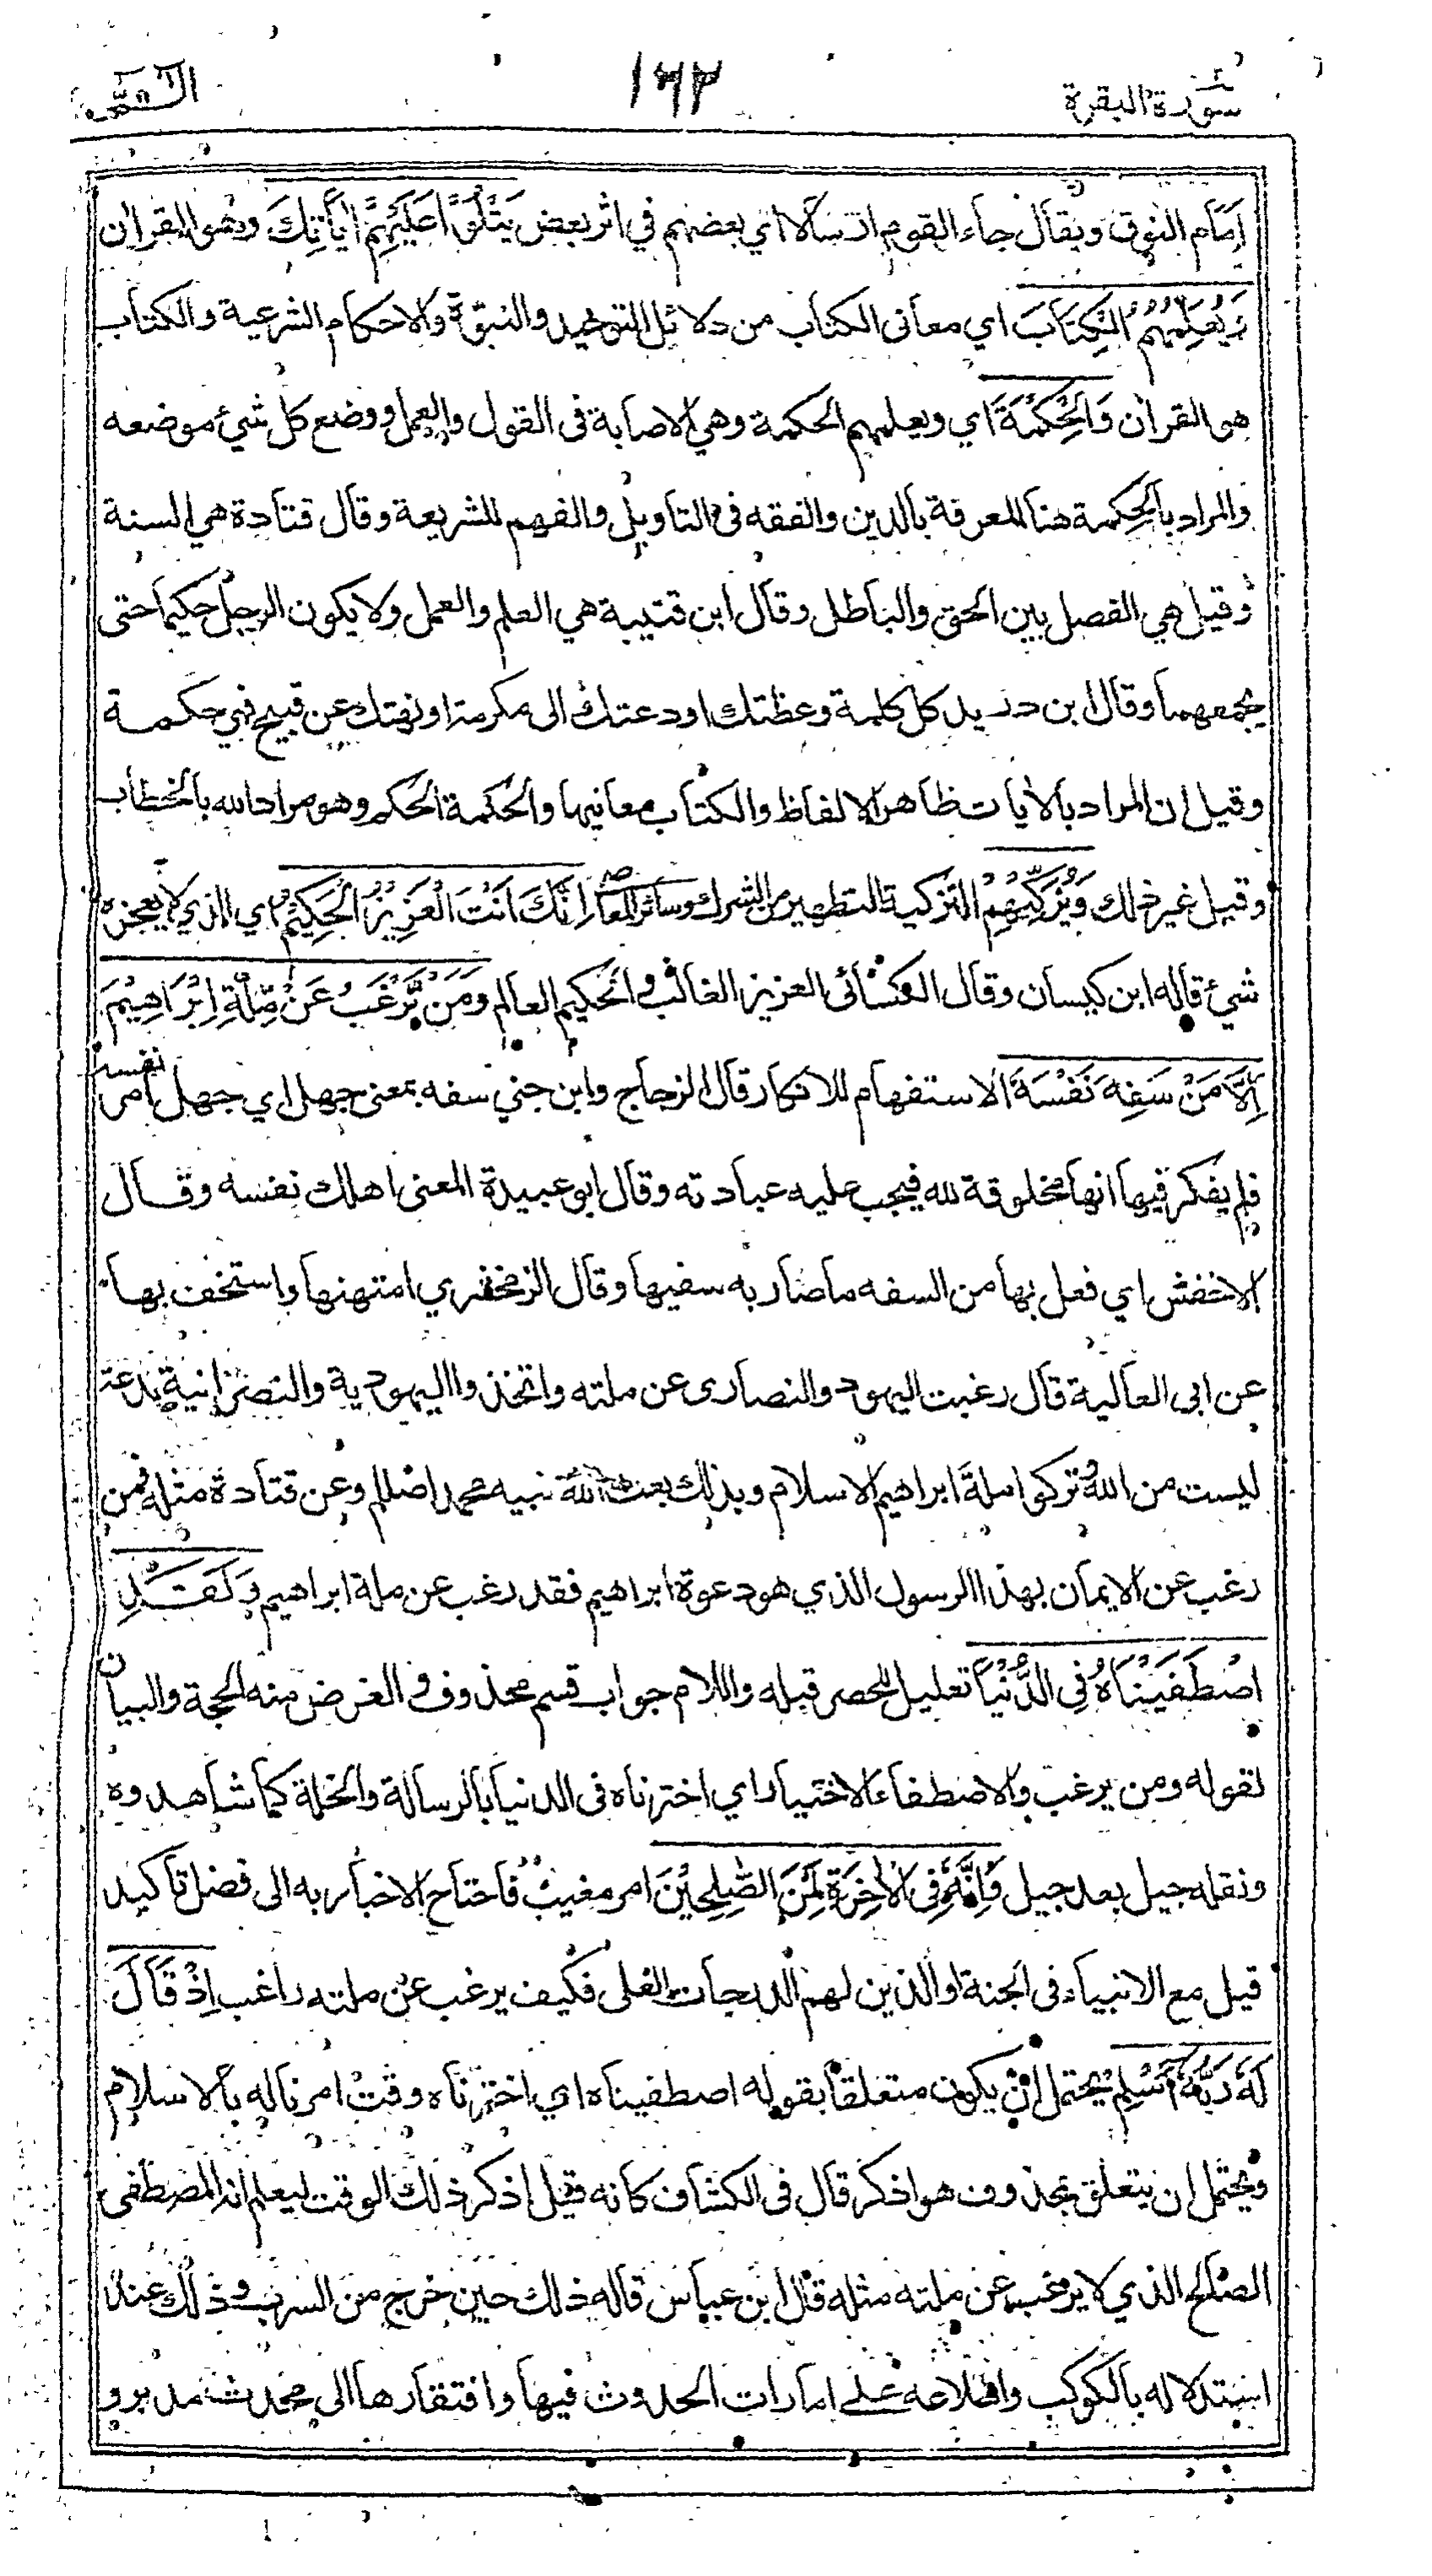 سورة البقرة ١٦٢ الۤمّۤ
امام النوق ويقال جاء القوم ارسالا اي بعضهم في اثر بعض يَتْلُوْا عَلَيْهِمْ اٰيَاتِكَ وهو القرآن
وَيُعَلِّمُهُمُ الْكِتَابَ اي معاني الكتاب من دلائل التوحيد والنبوة والاحكام الشرعية والكتاب
هو القرآن وَالْحِكْمَةَ اي ويعلمهم الحكمة وهي الاصابة في القول والعمل ووضع كل شيء موضعه
والمراد بالحكمة هنا المعرفة بالدين والفقه في التاويل والفهم للشريعة وقال قتادة هي السنة
وقيل هي الفصل بين الحق والباطل وقال ابن قتيبة هي العلم والعمل ولا يكون الرجل حكيما حتى
يجمعهما وقال ابن دريد كل كلمة وعظتك او دعتك الى مكرمة او نهتك عن قبيح فهي حكمة
وقيل ان المراد بالايات ظاهر الالفاظ والكتاب معانيها والحكمة الحكم وهو مراد الله بالخطاب
وقيل غير ذلك وَيُزَكِّيْهِمْ التزكية التطهير من الشرك وسائر المعاصي اِنَّكَ اَنْتَ الْعَزِيْزُ الْحَكِيْمُ اي الذي لا يعجزه
شيء قاله ابن كيسان وقال الكسائي العزيز الغالب والحكيم العالم وَمَنْ يَّرْغَبُ عَنْ مِّلَّةِ اِبْرَاهِيْمَ
اِلَّا مَنْ سَفِهَ نَفْسَهٗ الاستفهام للانكار قال الزجاج وابن جني سفه بمعنى جهل اي جهل امر نفسه
فلم يفكر فيها انها مخلوقة لله فيجب عليه عبادته وقال ابو عبيدة المعنى اهلك نفسه وقال
الاخفش اي فعل بها من السفه ما صار به سفيها وقال الزمخشري امتهنها واستخف بها
عن ابي العالية قال رغبت اليهود والنصارى عن ملته واتخذوا اليهودية والنصرانية بدعة
ليست من الله تركوا ملة ابراهيم الاسلام وبذلك بعث الله نبيه محمدا صللم وعن قتادة مثله فمن
رغب عن الايمان بهذا الرسول الذي هو دعوة ابراهيم فقد رغب عن ملة ابراهيم وَلَقَدِ
اصْطَفَيْنَاهُ فِي الدُّنْيَا تعليل للحصر قبله واللام جواب قسم محذوف والغرض منه الحجة والبيان
لقوله ومن يرغب والاصطفاء الاختيار اي اخترناه في الدنيا بالرسالة والخلة كما شاهدوه
ونقله جيل بعد جيل وَاِنَّهٗ فِي الْاٰخِرَةِ لَمِنَ الصّٰلِحِيْنَ امر مغيب فاحتاج الاخبار به الى فضل تاكيد
قيل مع الانبياء في الجنة او الذين لهم الدرجات العلى فكيف يرغب عن ملته راغب اِذْ قَالَ
لَهٗ رَبُّهٗ اَسْلِمْ يحتمل ان يكون متعلقا بقوله اصطفيناه اي اخترناه وقت امرنا له بالاسلام
ويحتمل ان يتعلق بمحذوف هو اذكر قال في الكشاف كانه قيل اذكر ذلك الوقت ليعلم انه المصطفى
الصالح الذي لا يرغب عن ملته مثله قال ابن عباس قاله ذلك حين خرج من السرب وذلك عند
استدلاله بالكوكب واطلاعه على امارات الحدوث فيها وافتقارها الى محدث مدبر و